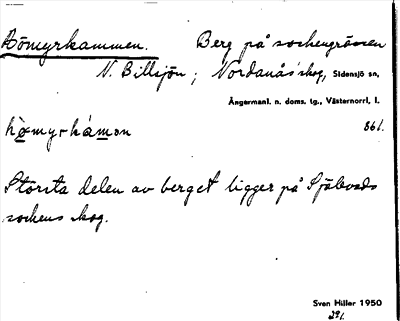 Hömyrkammen. Berg på sockengränsen
N. Billsjön; Nordanås skog, Sidensjö sn,
Ångermanl. n. doms. lg., Västernorrl. l.
861.
Största delen av berget ligger på Själevads
sockens skog.
Sven Hiller 1950